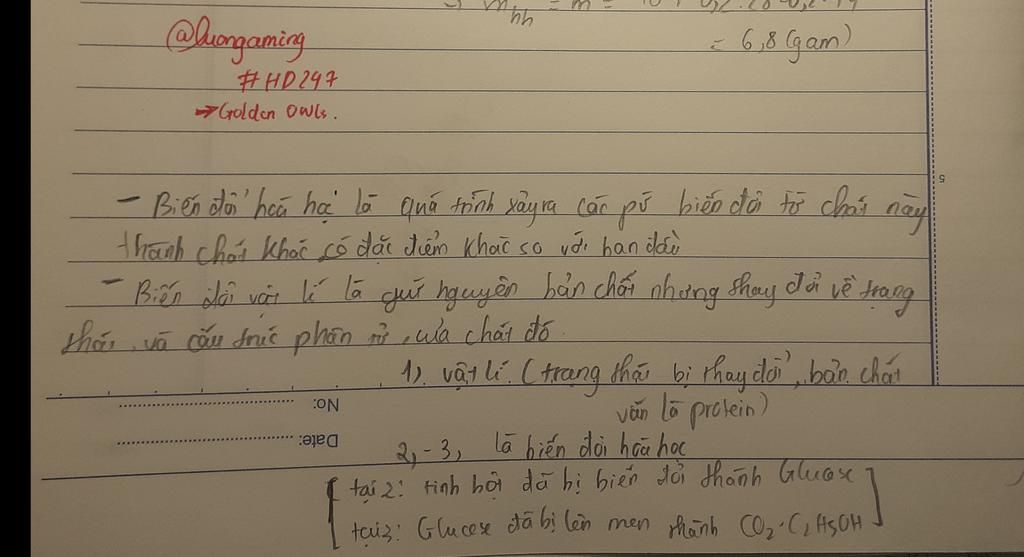 = 6,8 (gam)
hh
@luongaming
#HD247
→ Golden Owls.
5
- Biến đổi hoá học là quá trình xảy ra các pứ biến đổi từ chất này
thành chất khác, có đặc điểm khác so với ban đầu
- Biến đổi vật lí là giữ nguyên bản chất nhưng thay đổi về trạng
thái, và cấu trúc phân tử, của chất đó.
1). vật lí. (trạng thái bị thay đổi, bản chất
vẫn là protein)
No:
Date:
2, - 3, là biến đổi hoá học
[tại 2: tinh bột đã bị biến đổi thành Glucose
tại 3: Glucose đã bị lên men thành CO2. C2H5OH]